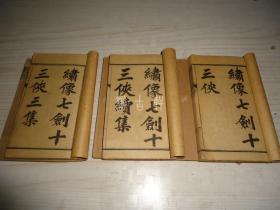 繡像七劍十
三俠
繡像七劍十
三俠續集
繡像七劍十
三俠三集